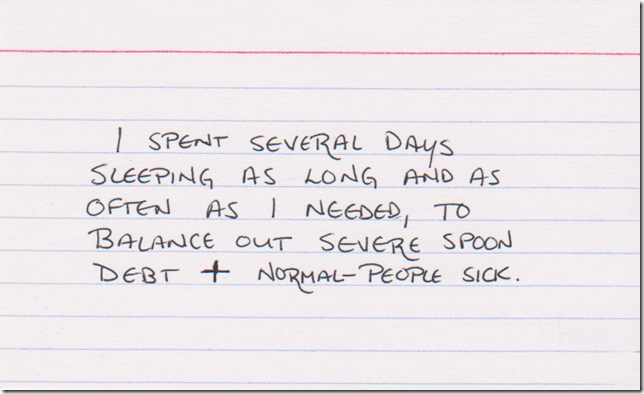 I SPENT SEVERAL DAYS
SLEEPING AS LONG AND AS
OFTEN AS I NEEDED, TO
BALANCE OUT SEVERE SPOON
DEBT + NORMAL-PEOPLE SICK.